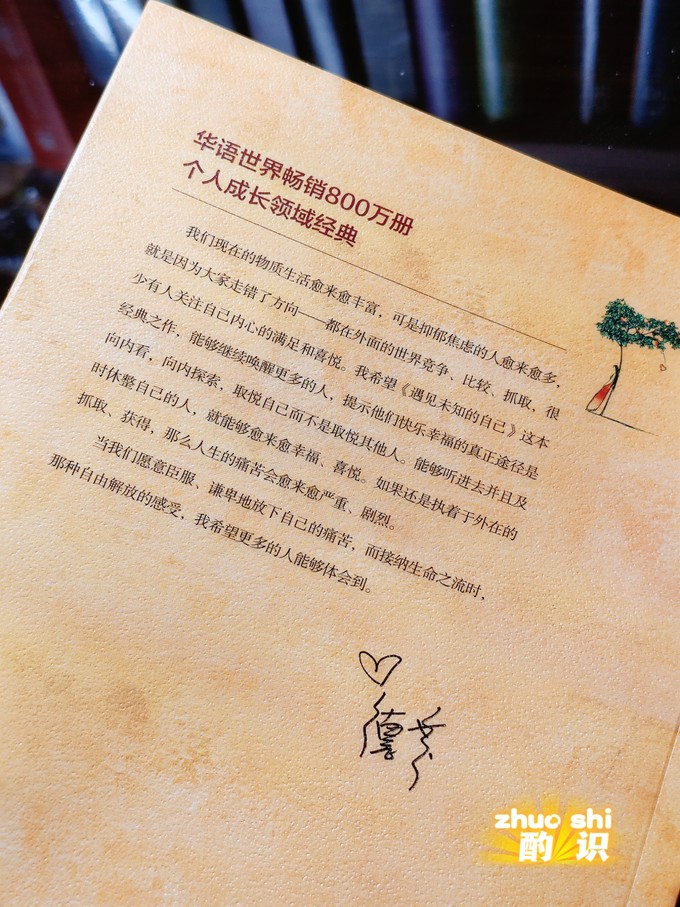 华语世界畅销800万册
个人成长领域经典
我们现在的物质生活愈来愈丰富，可是抑郁焦虑的人愈来愈多，
就是因为大家走错了方向——都在外面的世界竞争、比较、抓取，很
少有人关注自己内心的满足和喜悦。我希望《遇见未知的自己》这本
经典之作，能够继续唤醒更多的人，提示他们快乐幸福的真正途径是
向内看，向内探索，取悦自己而不是取悦其他人。能够听进去并且及
时休整自己的人，就能够愈来愈幸福、喜悦。如果还是执着于外在的
抓取、获得，那么人生的痛苦会愈来愈严重、剧烈。
当我们愿意臣服、谦卑地放下自己的痛苦，而接纳生命之流时，
那种自由解放的感受，我希望更多的人能够体会到。
zhuo shi
酌识